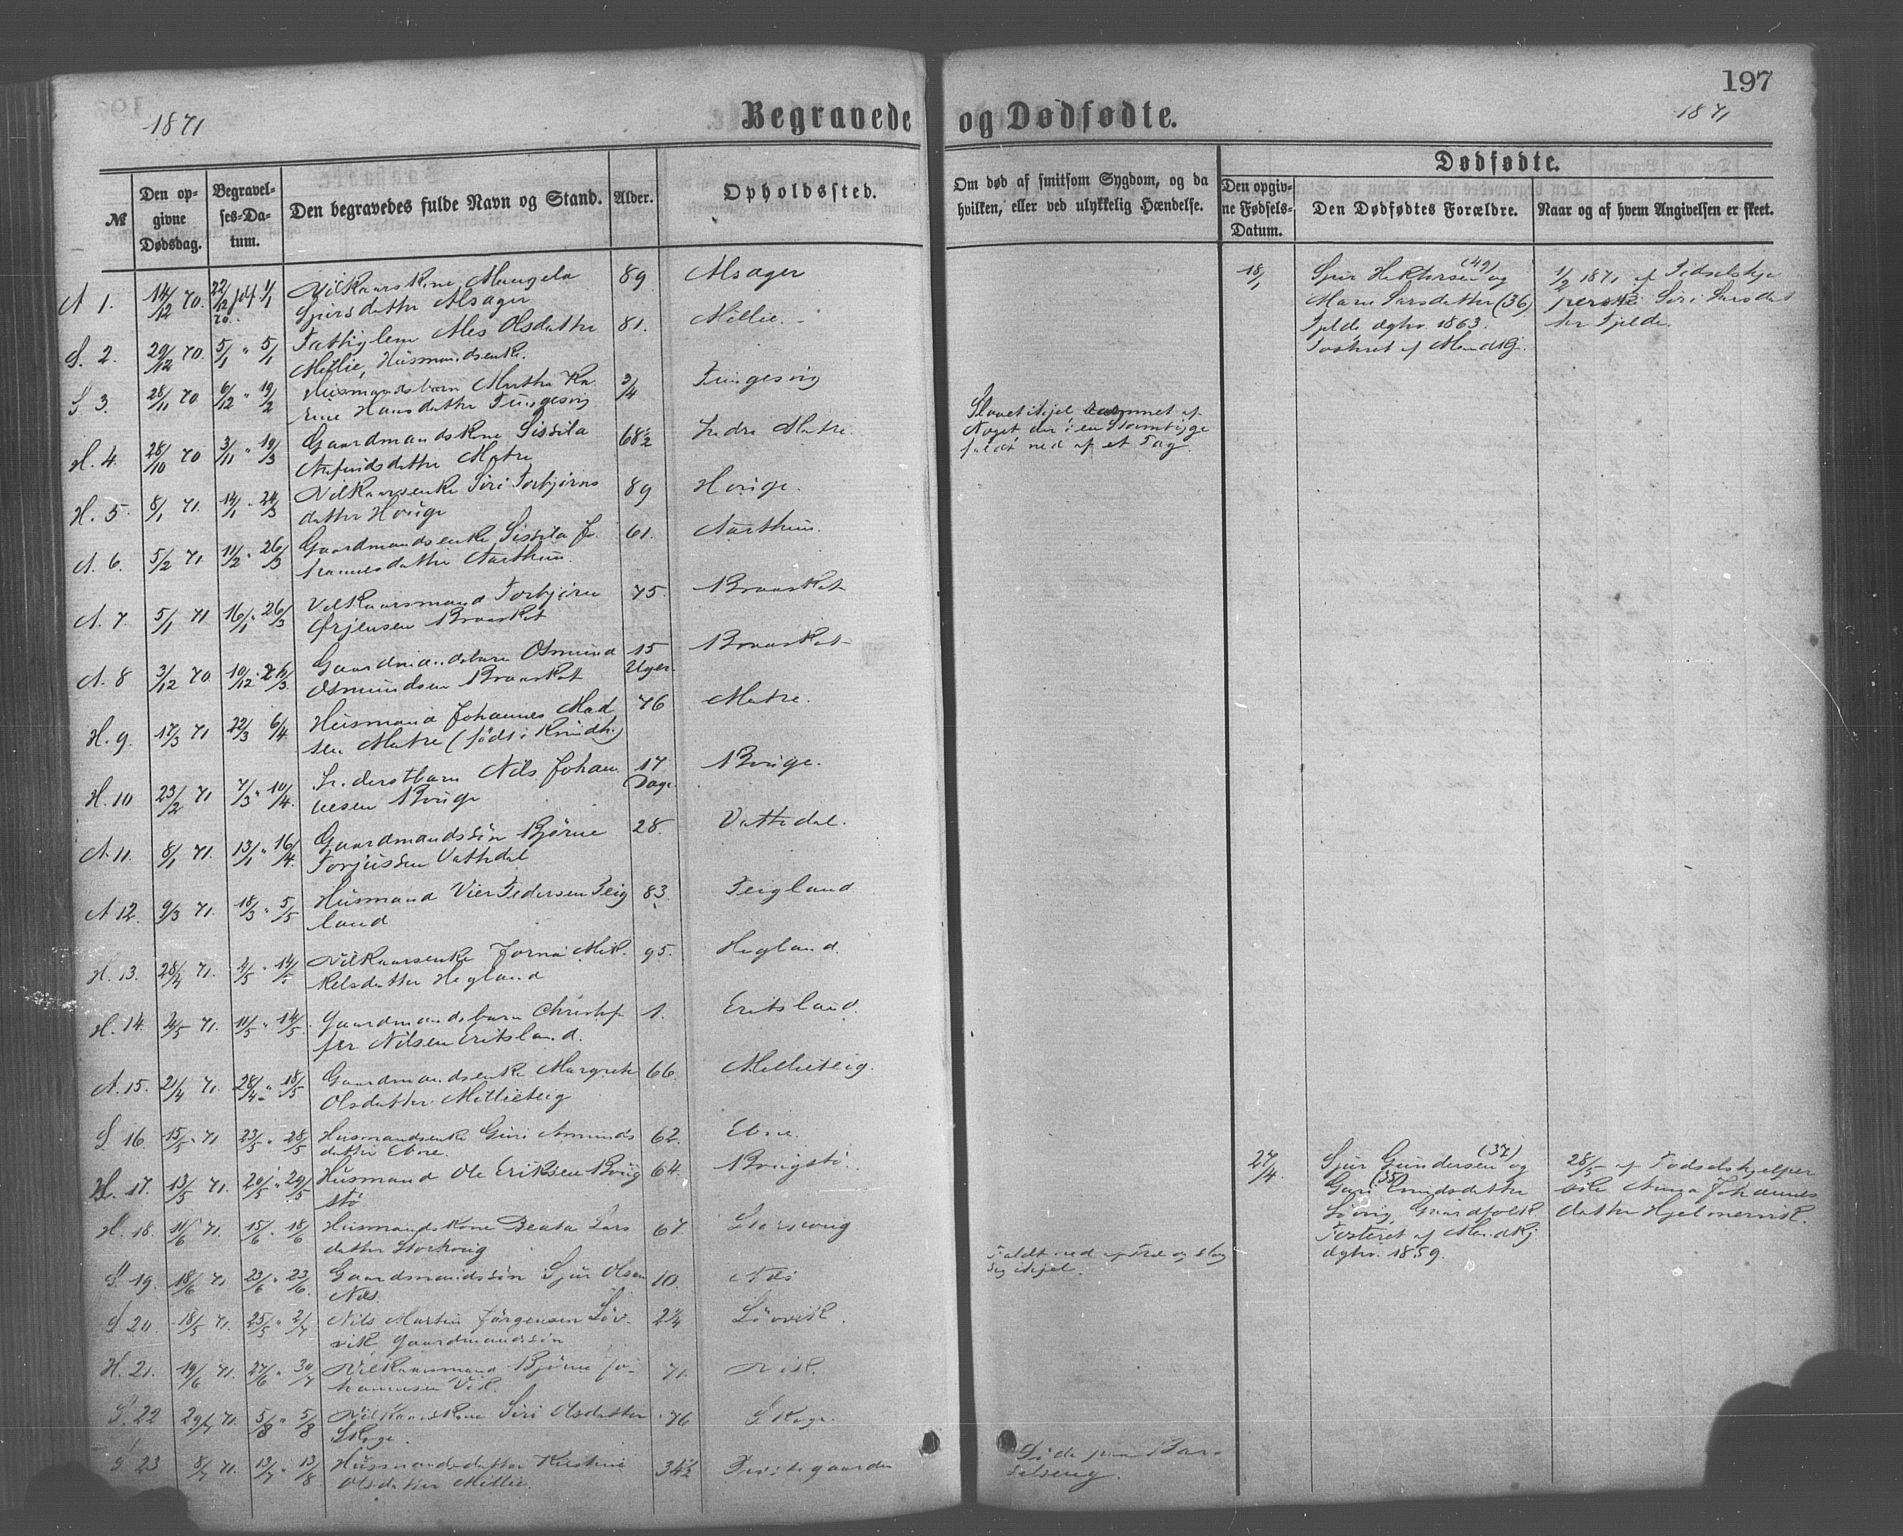 197
1871
Begravede og Dødfødte.
1871
Dødfødte.
№
Den opgivne Dødsdag.
Begravelses-Datum.
Den begravedes fulde Navn og Stand.
Alder.
Opholdssted.
Om død af smitsom Sygdom, og da hvilken, eller ved ulykkelig Hændelse.
Den opgivne Fødsels-Datum.
Den Dødfødtes Forældre.
Naar og af hvem Angivelsen er skeet.
A 1. 14/12 70. 22/12 70 jdf 1/1 Vilkaarskone Mangela 89 Alsager
Sjursdatter Alsager
S. 2. 29/12 70. 5/1 " 5/1 Fattiglem Ales Olsdatter 81. Millie.
Millie, Husmandsenke.
S 3. 28/11 70 6/12 " 19/2 Husmandsbarn Martha Ka 3/4 Tungesvig
rine Hansdatter Tungesvig
H. 4. 28/10 70 3/11 " 19/3 Gaardmandskone Sissila 68½ Indre Matre Slaaet ihjel rammet af
Matre Noget der i en Stormbyge
faldt ned af et Tag.
H. 5. 8/1 71. 14/1 " 24/3 Vilkaarsenke Siri Torbjørns 89 Houge.
datter Houge
A. 6. 5/2 71 11/2 " 26/3 Gaardmandsenke Sissila Jo 61. Aarthun.
hannesdatter Aarthun.
A. 7. 5/1 71 16/1 " 26/3 Vilkaarsmand Torbjørn 75. Braarket
Ørjensen Braarket
A. 8 3/12 70 10/12 " 26/3 Gaardmandsbarn Osmund 15 Uger Braarket
Osmundsen Braarket
H. 9. 17/3 71 22/3 6/4 Husmand Johannes Mad 76 Matre.
sen Matre (født i Kvindh.)
H. 10 23/2 71 7/3 " 10/4. Inderstbarn Nils Johan 17 Dage Bouge.
nesen Bouge
A. 11. 8/1 71. 13/1 " 16/4. Gaardmandssøn Bjørne 28. Vattedal.
Torjussen Vattedal
A 12. 9/3 71. 18/3 " 5/5 Husmand Vier Pedersen Teig 83. Teigland
land
H. 13. 28/4 71. 4/5 " 14/5 Vilkaarsenke Jorna Mik 95. Hegland.
kelsdatter Hegland
H. 14. 4/5 71. 11/5 " 14/5. Gaardmandsbarn Christof 1. Eritsland.
fer Nilsen Eritsland.
A. 15. 21/4 71 28/4 " 18/5 Gaardmandsenke Margrete 66. Millieteig.
Olsdatter Millieteig
S. 16. 15/5 71 23/5 " 28/5 Husmandsenke Guri Amunds 62. Ebne.
datter Ebne.
17. 13/5 71. 20/5 " 29/5 Husmand Ole Eriksen Boug 64. Bougstø.
stø
H. 18. 11/6 71. 15/6 " 18/6 Husmandskone Beata Lars 67.
datter
S. 19. 18/6 71 23/6 " 23/6. Gaardmandssøn Sjur Olsen 10. Faldt ned af Træ og slog
sig ihjel.
S 20. 18/5 71. 25/5 " 2/7 Nils Martin Jørgensen Løv- 2¼ Løvvik.
vik Gaardmandssøn
H. 21. 19/6 71. 27/6 " 30/7 Vilkaarsmand Bjørne Jo- 71. Vik.
hannesen Vik.
S. 22 29/7 71. 5/8 " 5/8 Vilkaarskone Siri Olsdatter 76 Skoge.
Skoge.
S 23 8/7 71. 13/7 " 13/8 Husmandsdatter Kirstine 34½ Døde paa Bar-
Olsdatter Millie. selseng.
18/1 Sjur Hektorsen (49) og 1/2 1871 af Fødselshjæ
Mari Larsdatter (36) Siri Larsdat
Fjelde dghv. 1863. ter Fjelde.
Fosteret af Mandkj.
27/4 Sjur Gundersen (37) og 28/5 af Fødselshjelper
Guri (35) Knudsdatter Anna Johannes
Løvvig, Gaardfolk datter Hjelmervik.
Fosteret af Mandkj
dghv. 1859.